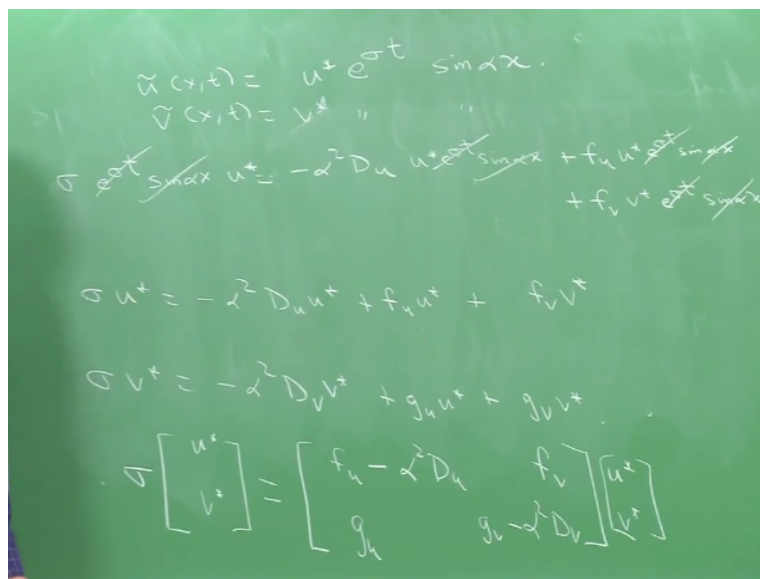 ũ(x,t) = u* e^{σt} sin αx.
ṽ(x,t) = v* " "
σ e^{σt} sin αx u* = -α² Du u* e^{σt} sin αx + fu u* e^{σt} sin αx
+ fv v* e^{σt} sin αx
σ u* = - α² Du u* + fu u* + fv v*
σ v* = - α² Dv v* + gu u* + gv v*
σ [u* v*] = [fu - α² Du fv gu gv - α² Dv] [u* v*]